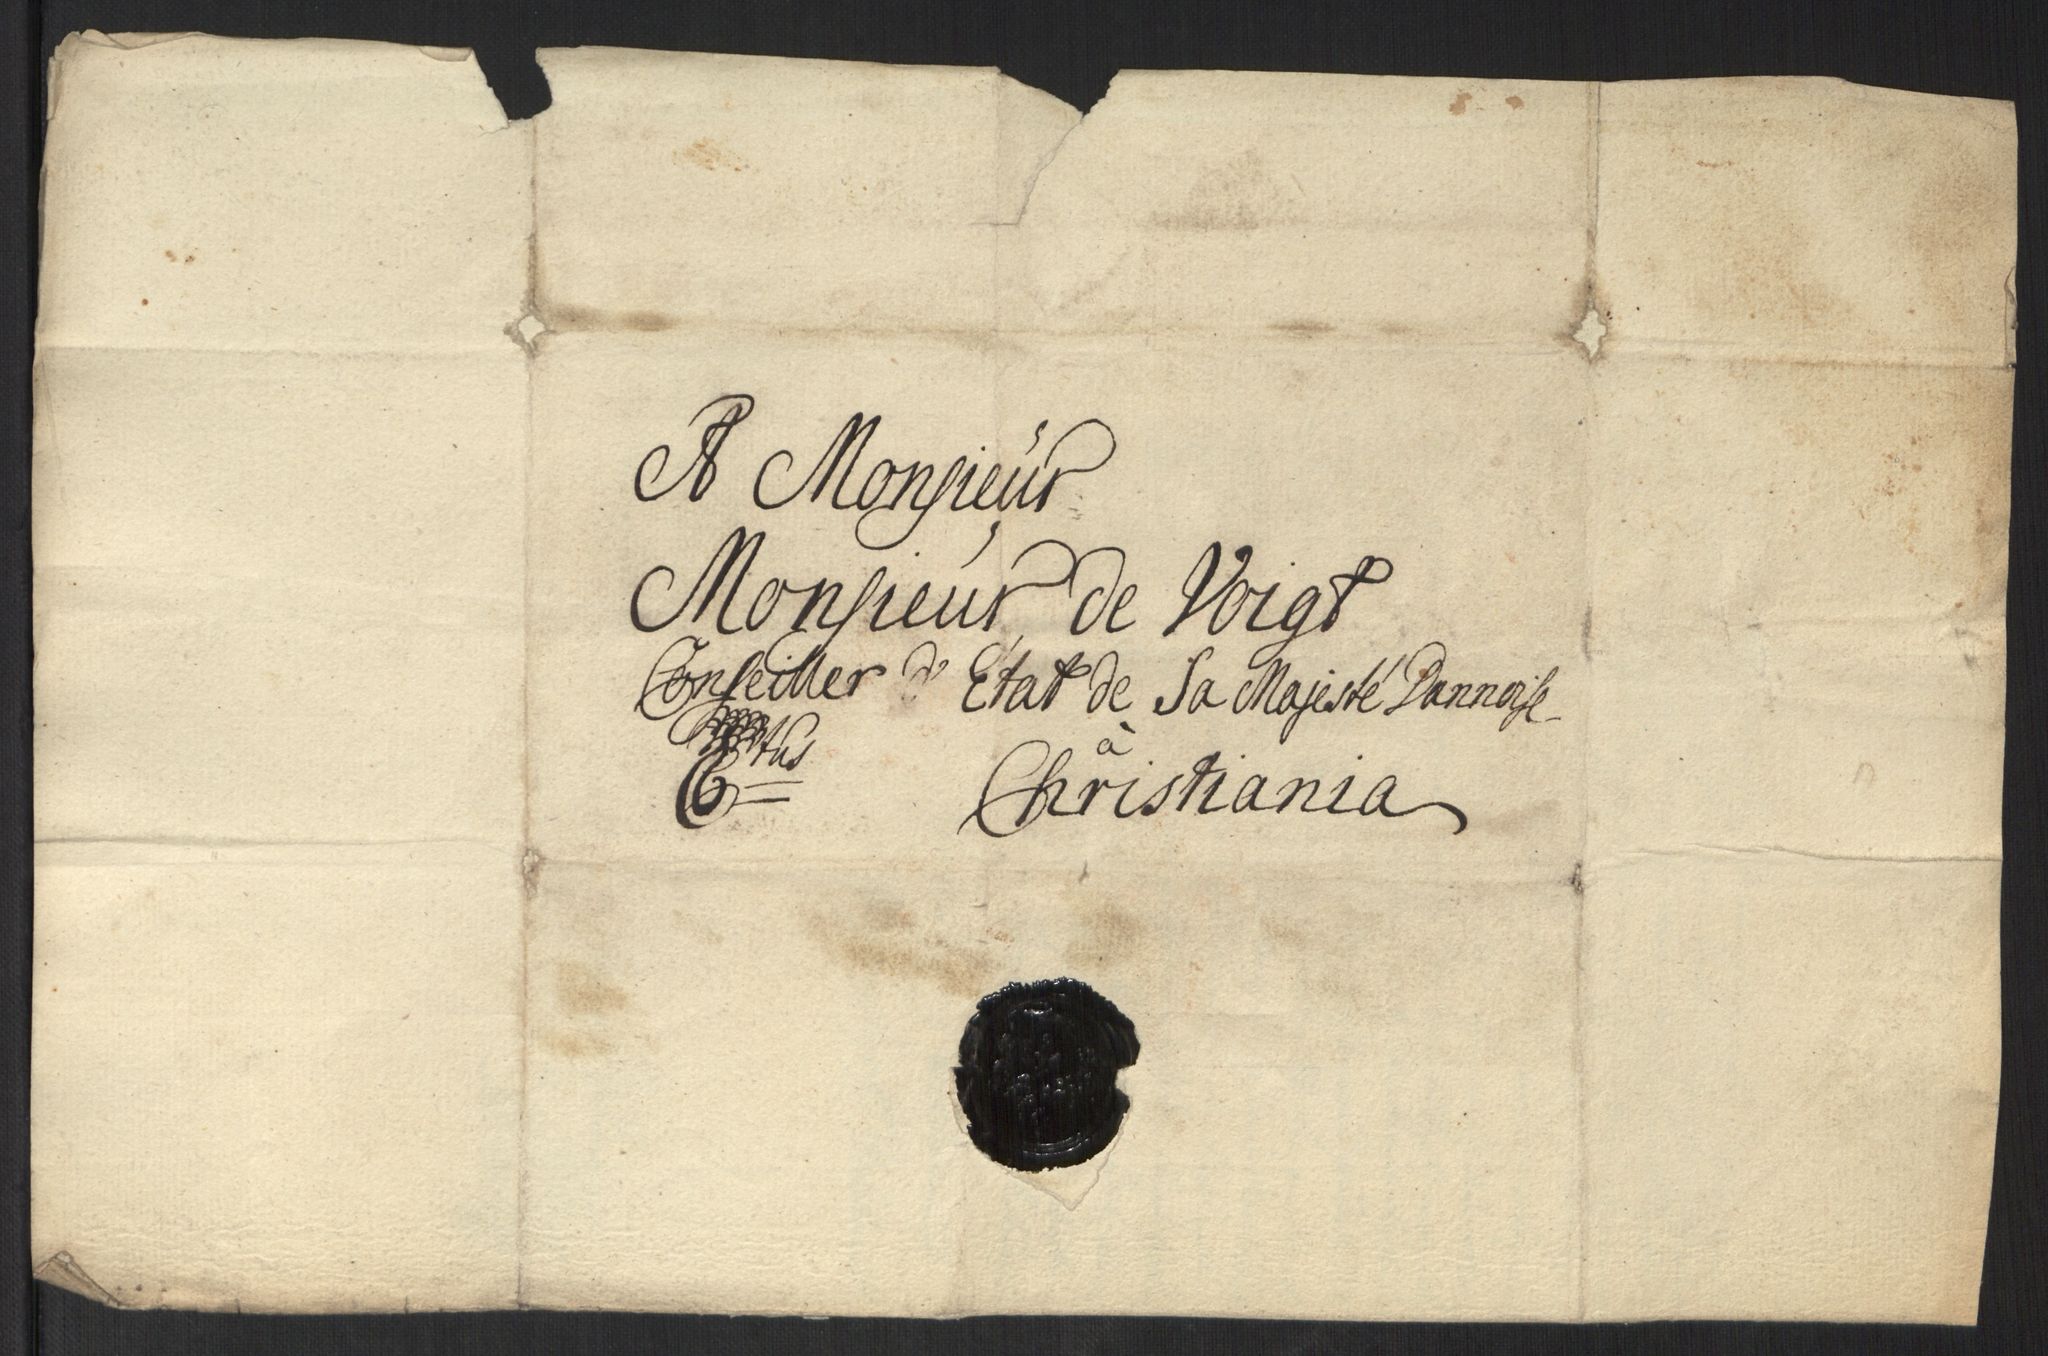 A Monsieur
Monsieur de Voigt
Conseiller d'Etat de Sa Majesté Dannoise
à
Christiania